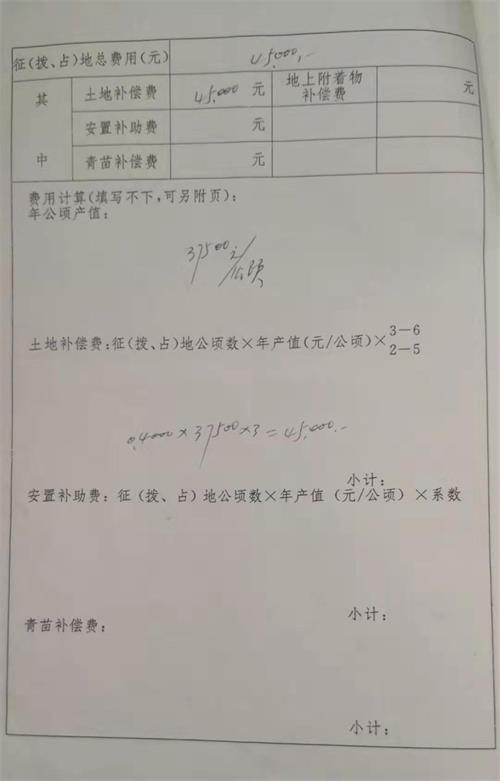 征(拨、占)地总费用(元) 45000,-
其中 土地补偿费 45,000 元 地上附着物补偿费 元
安置补助费 元
青苗补偿费 元
费用计算(填写不下,可另附页):
年公顷产值:
37500元/公顷
土地补偿费:征(拨、占)地公顷数×年产值(元/公顷)×3—6
2—5
0.4000×37500×3=45,000.-
小计:
安置补助费:征(拨、占)地公顷数×年产值(元/公顷)×系数
小计:
青苗补偿费:
小计: